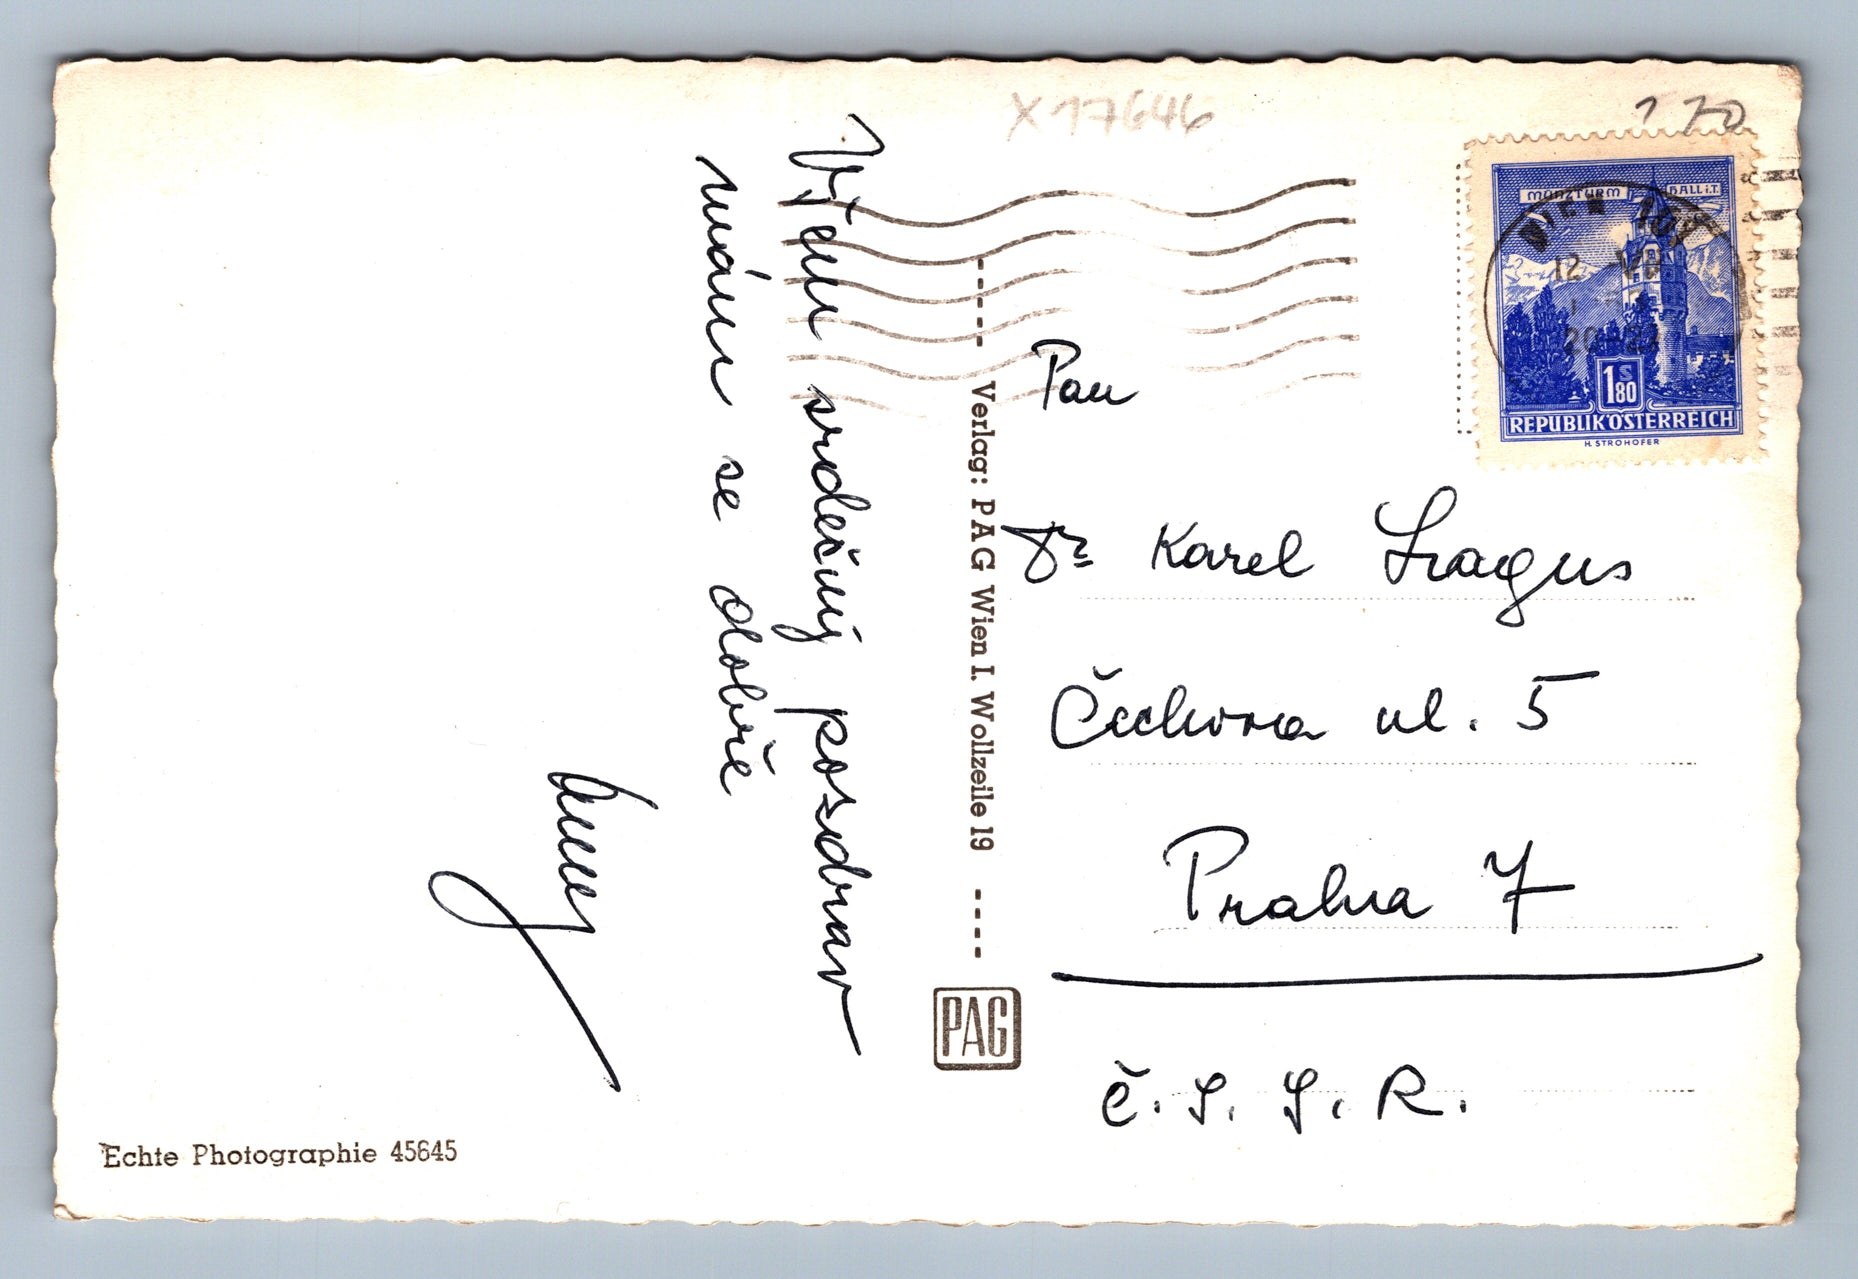 X17646
Všem srdečný pozdrav
mám se dobře
Verlag: PAG Wien I. Wollzeile 19
PAG
Echte Photographie 45645
MÜNZTURM HALL i.T.
WIEN
12
20-21
1 S 80
REPUBLIK ÖSTERREICH
H. STROHOFER
Pan
Dr Karel Sragus
Čechova ul. 5
Praha 7
Č. S. S. R.